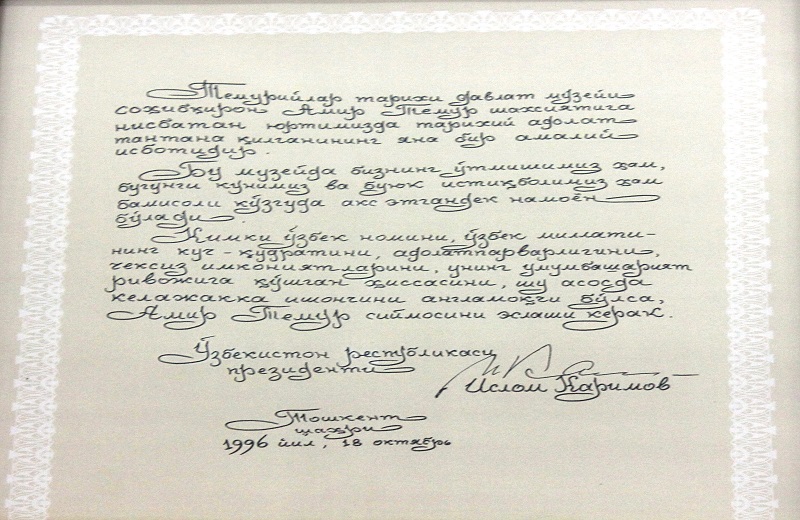 Темурийлар тарихи давлат музейи
соҳибқирон Амир Темур шахсиятига
нисбатан юртимизда тарихий адолат
тантана қилганининг яна бир амалий
исботидир.
Бу музейда бизнинг ўтмишимиз ҳам,
бугунги кунимиз ва буюк истиқболимиз ҳам
бамисоли кўзгуда акс этгандек намоён
бўлади.
Кимки ўзбек номини, ўзбек миллати-
нинг куч-қудратини, адолатпарварлигини,
чексиз имкониятларини, унинг умумбашарият
ривожига қўшган ҳиссасини, шу асосда
келажакка ишончини англамоқчи бўлса,
Амир Темур сиймосини эслаши керак.
Ўзбекистон республикаси
президенти
Ислом Каримов
Тошкент
шаҳри
1996 йил, 18 октябрь